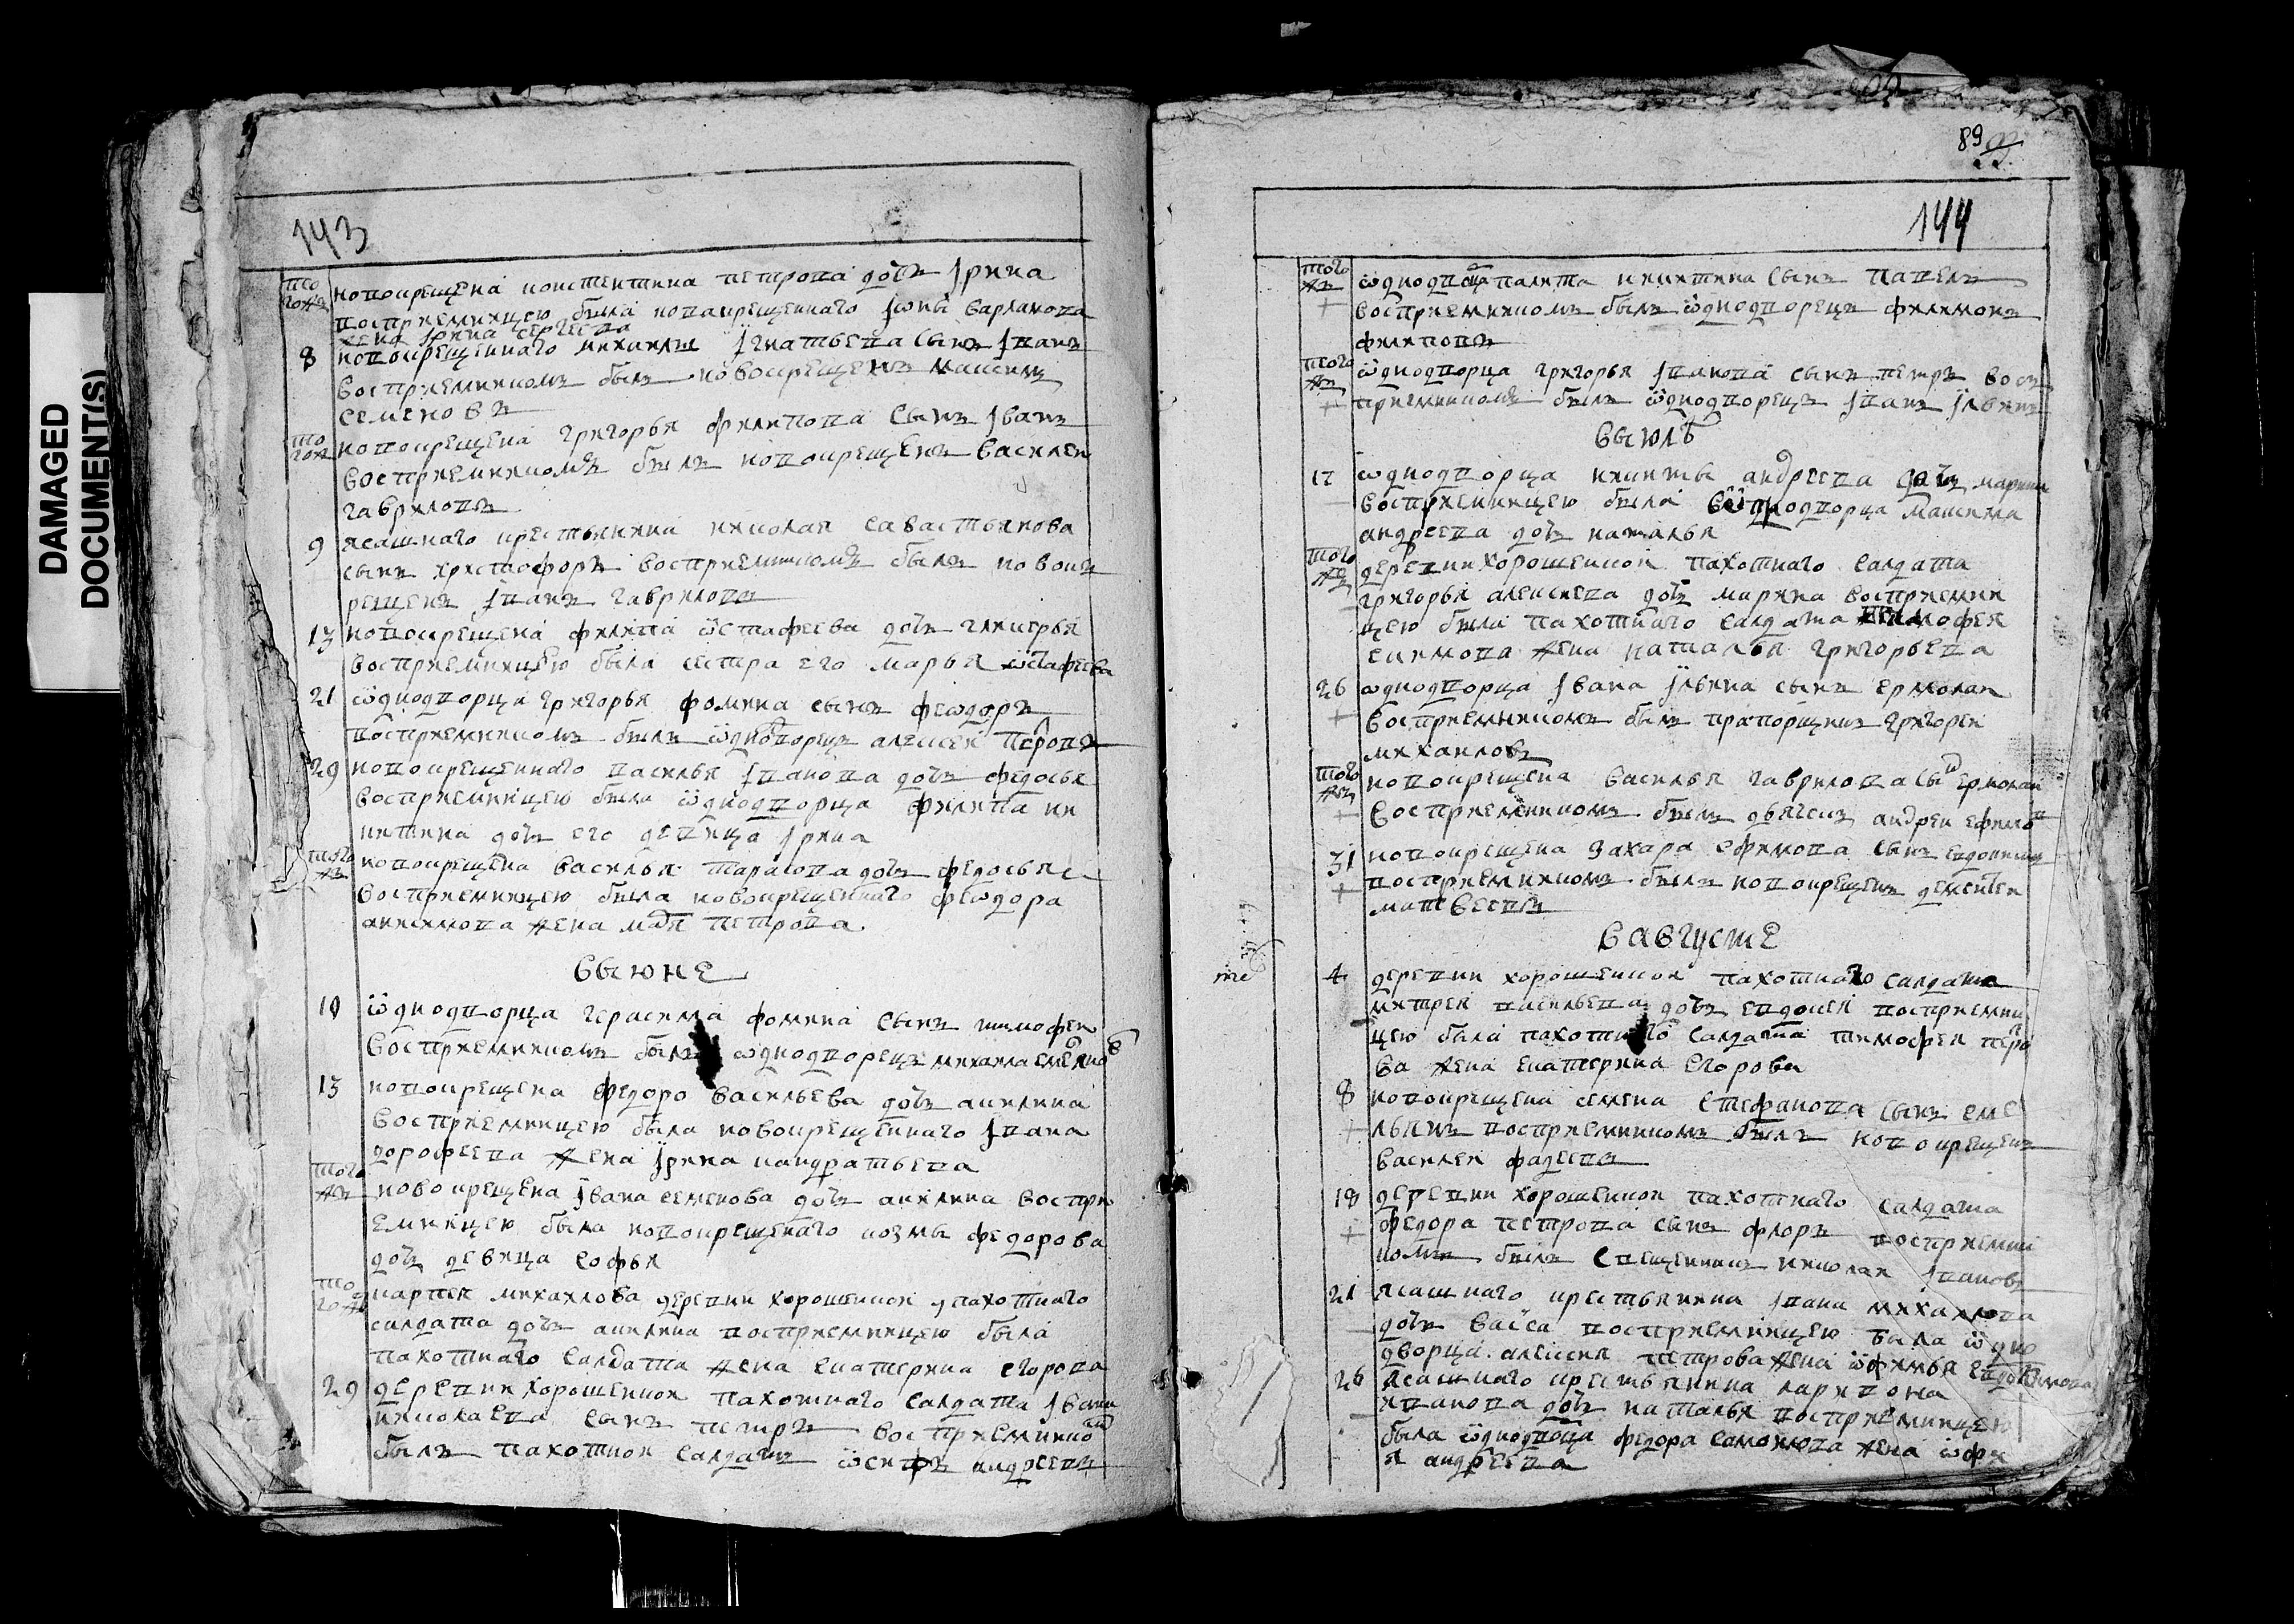 DAMAGED
DOCUMENT(S)
143
того ж новокрещена констентина петрова дочь Ирина
восприемницею была новакрещеннаго Iwны варламова
жена Iрина сергеева
8 новокрещеннаго Игнатьева сынъ Iванъ
восприемникомъ былъ новокрещенъ максимъ
семеновъ
того ж новокрещена григорья филипова сынъ Iванъ
восприемникомъ былъ новокрещенъ василеи
гавриловъ
9 ясашнаго крестьянина николая савастьянова
сынъ христофоръ восприемникомъ былъ новокъ
рещенъ Iванъ гавриловъ
13 новокрещена филипа ѿстафеева дочь гликерья
восприемницею была сестра его марья ѿстафеева
21 ѿднодворца григорья фомина сынъ феѡдоръ
восприемникомъ былъ ѿднодворецъ алексеи петровъ
29 новокрещеннаго василья Iванова дочь федосья
восприемницею была ѿднодворца филипа ни
китина дочь его девица Iрина
того ж новокрещена василья тарасова дочь федосья
восприемницею была новокрещеннаго феѡдора
анисимова жена петрова
въ июне
10 ѿднодворца герасима фомина сынъ тимофеи
восприемникомъ былъ ѡднодворецъ михаила
13 новокрещена федоро васильева дочь акилина
восприемницею была новокрещеннаго Iвана
дорофеева жена Iрина кандратьева
того ж новокрещена Iвана семенова дочь акилина воспри
емницею была новокрещенаго козмы федорова
дочь девица софья
того ж карпея михаилова деревни хорошенкои пахотнаго
салдата дочь акилина восприемницею была
пахотнаго салдата жена екатерина егорова
29 деревни хорошенкои пахотнаго салдата Iвана
николаева сынъ петръ восприемникомъ
былъ пахотнои салдатъ ѿсипъ андреевъ
89
144
того ж ѿднодворца никитина сынъ павелъ
восприемникомъ былъ ѿднодворецъ филимонъ
филиповъ
того ж ѿднодворца григорья Iванова сынъ петръ вос
приемникомъ былъ ѿднодворецъ Iванъ Iльинъ
въ июлѣ
17 ѡднодворца никиты андреева дочь марина
восприемницею была ѿднодворца максима
андреева дочь наталья
того ж деревни хорошенкои пахотнаго салдата
григорья алексеева дочь марина восприемни
цею была пахотнаго салдата тимофея
екимова жена наталья григорьева
26 ѡднодворца Iвана Iльина сынъ ермолаи
восприемникомъ былъ прапорщикъ григореи
михаиловъ
того ж новокрещена василья гаврилова сынъ ермолаи
восприемникомъ былъ дьячекъ андреи ефимов
31 новокрещена захара ефимова сынъ евдокимъ
восприемникомъ былъ новокрещенъ дементеи
матвеевъ
в августе
4 деревни хорошенкои пахотнаго салдата
митрея васильева дочь евдокея восприемни
цею была пахотнаго салдата тимофея петро
ва жена екатерина егорова
8 новокрещена семена стефанова сынъ еме
льянъ восприемникомъ былъ новокрещенъ
василеи фадеевъ
18 деревни хорошенкои пахотнаго салдата
федора петрова сынъ флоръ восприемни
комъ былъ священникъ николаи Iвановъ
21 ясашнаго крестьянина Iвана михаилова
дочь васса восприемницею была ѿдно
дворца алексея петрова жена ѿфимья евдокимова
26 ясашнаго крестьянина ларивона
иванова дочь наталья восприемницею
была ѿднодворца федора самоилова жена ѿфи
я андреева